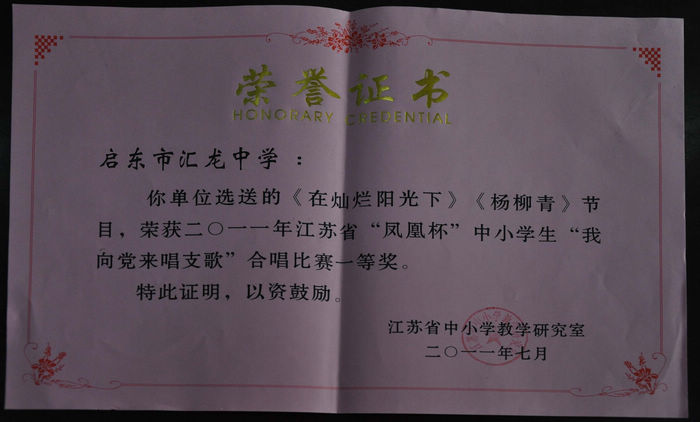 荣誉证书
HONORARY CREDENTIAL
启东市汇龙中学：
你单位选送的《在灿烂阳光下》《杨柳青》节
目，荣获二〇一一年江苏省“凤凰杯”中小学生“我
向党来唱支歌”合唱比赛一等奖。
特此证明，以资鼓励。
江苏省中小学教学研究室
二〇一一年七月